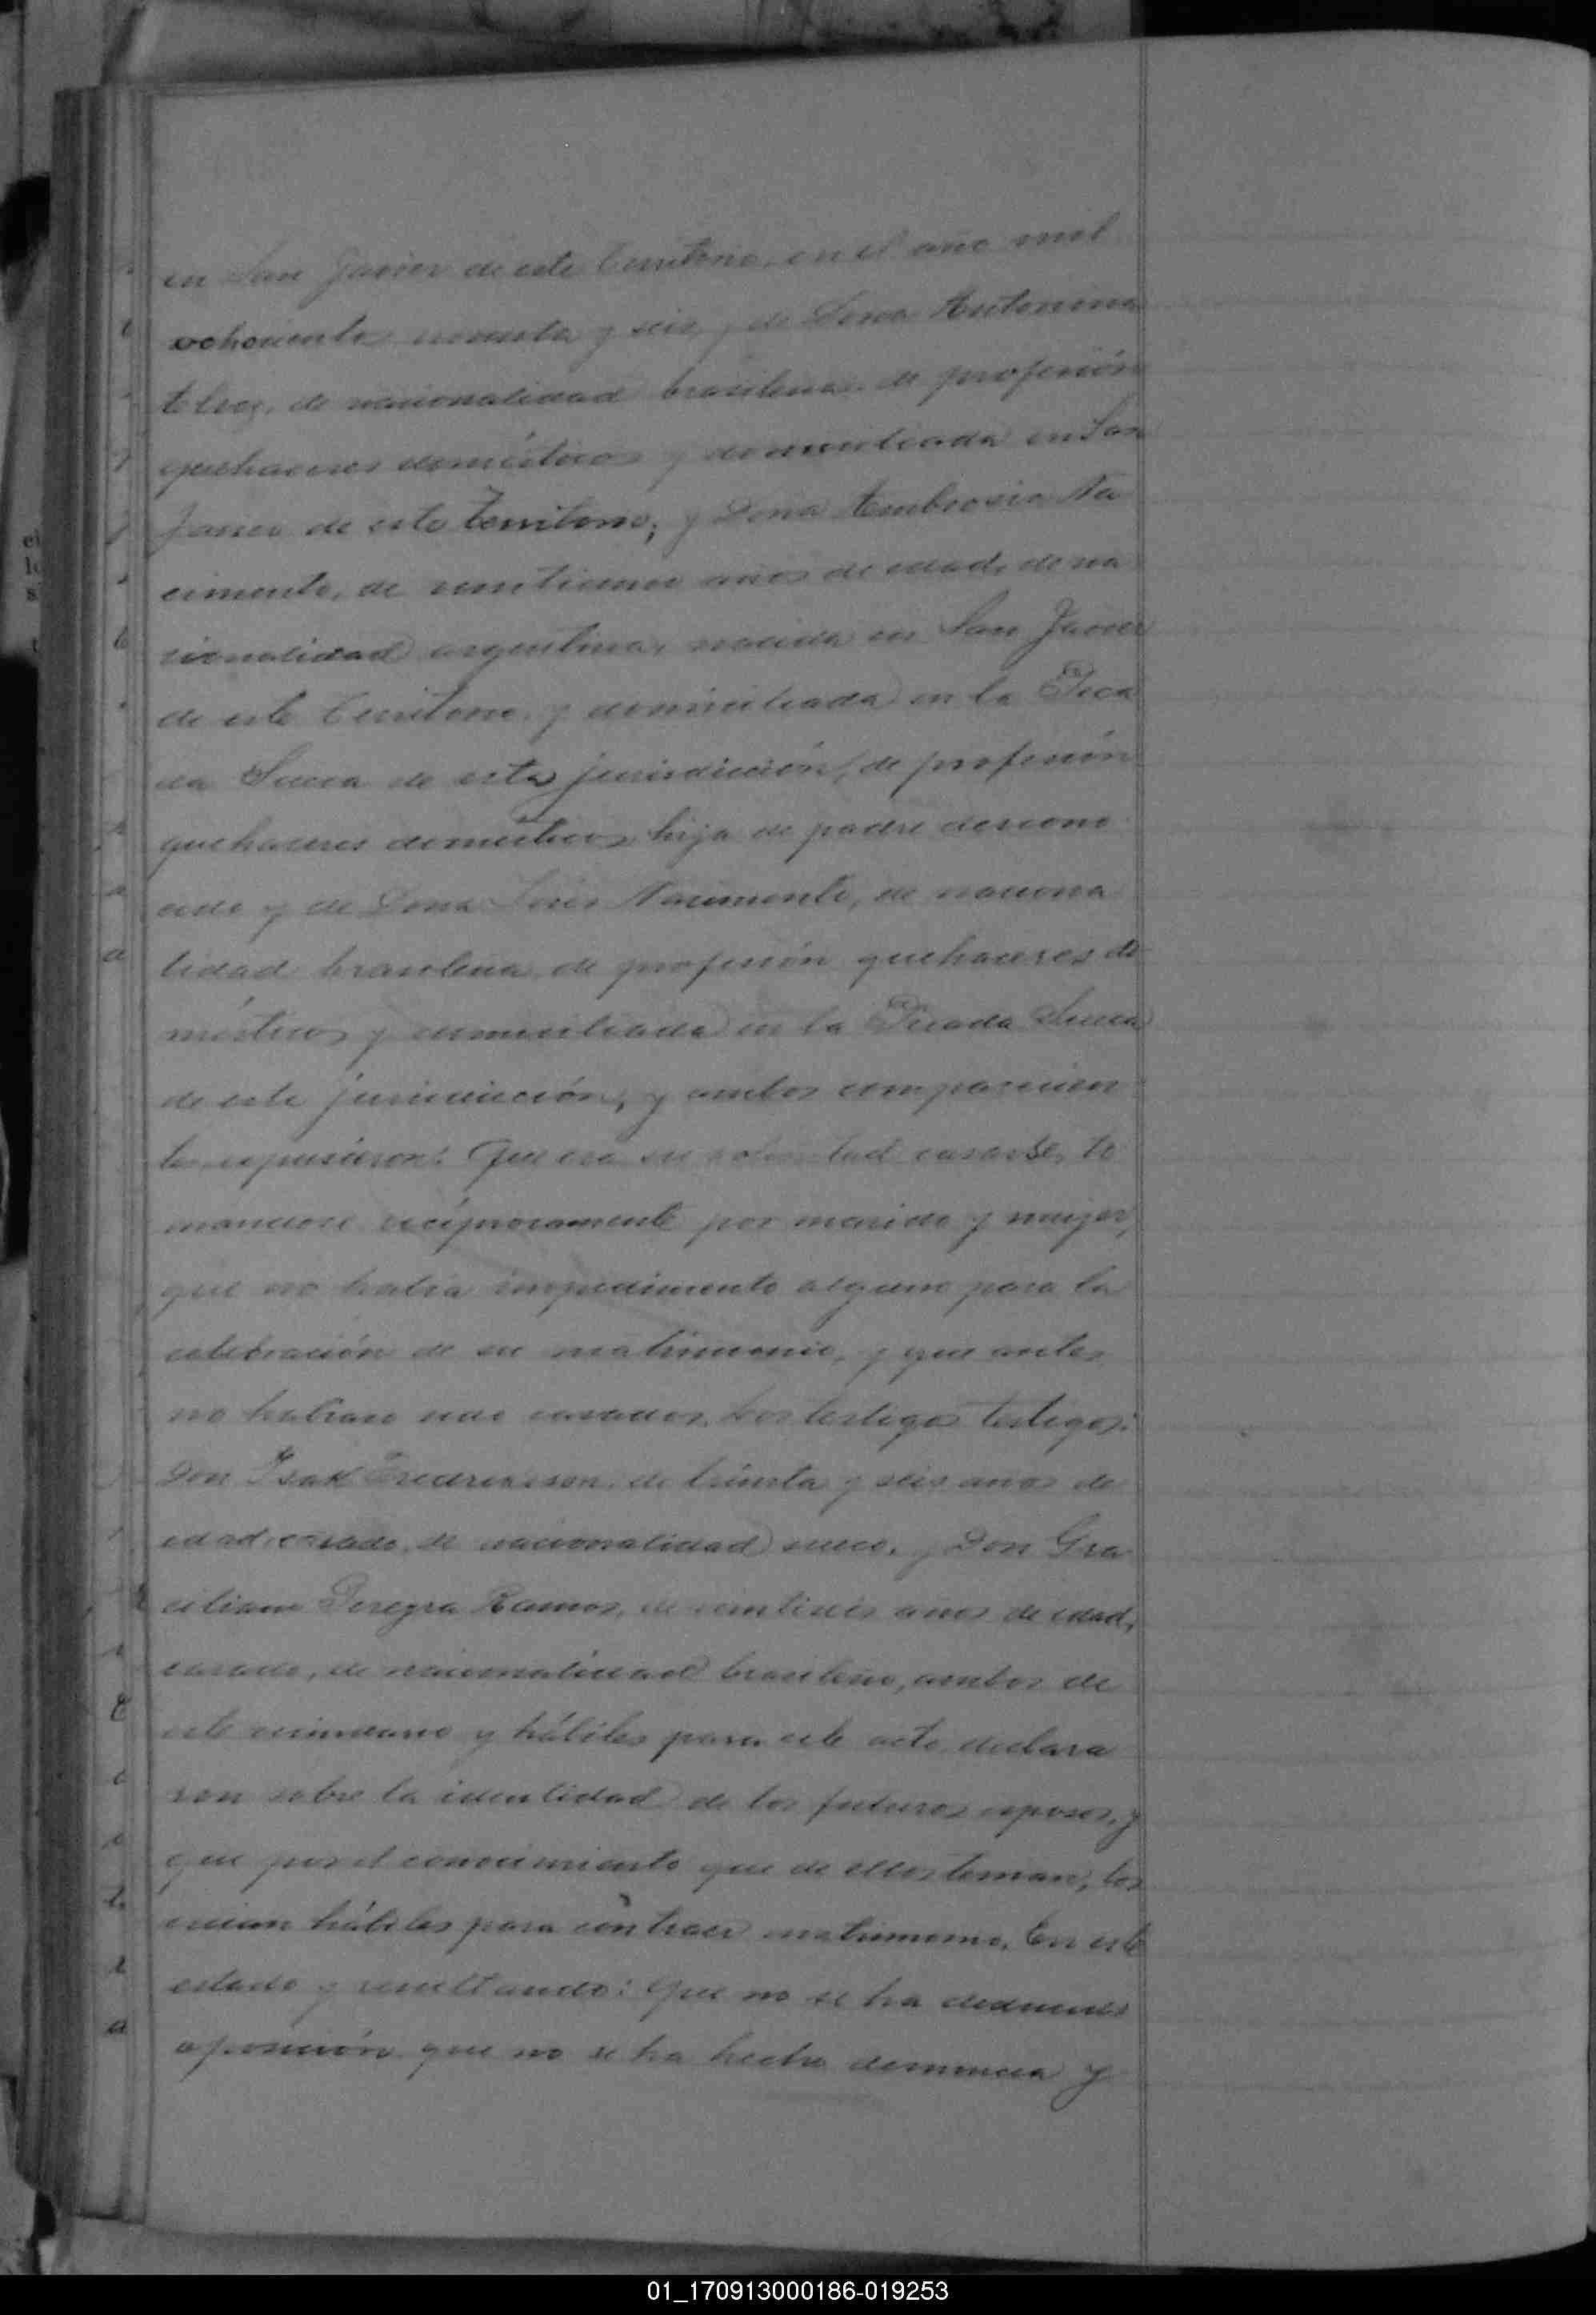 en San Javier de este Territorio, en el año mil
ochocientos noventa y seis, y de Doña Antonina
de nacionalidad brasilena, de profesión
quehaceres domésticos y domiciliada en San
Javier de este Territorio; y Dona Ambrosia Na
cimento, de años de edad, de na
cionalidad argentina, nacida en San Javier
de este Territorio, y domiciliada en la Pica
da Sueca de esta jurisdicción, de profesión
quehaceres domésticos, hija de padre descono
cido y de Dona Nacimento, de naciona
lidad brasilena, de profesión quehaceres do
mésticos y domiciliada en la Picada Sueca
de esta jurisdicción, y ambos comparecien
tes expusieron: Que era su voluntad casarse, to
mandose recíprocamente por marido y mujer,
que no habia impedimento alguno para la
celebración de su matrimonio, y que antes
no habian sido casados. Los testigos testigos:
Don Isak de treinta y seis anos de
edad, casado, de nacionalidad sueco, y Don Gra
ciliano Pereyra Ramos, de anos de edad,
casado, de nacionalidad brasileno, ambos de
este vecindario y hábiles para este acto, declara
ron sobre la identidad de los futuros esposos, y
que por el conocimiento que de ellos tenian, los
creian hábiles para contraer matrimonio. En este
estado y resultando: Que no se ha deducido
oposición, que no se ha hecho denuncia y
01_170913000186-019253